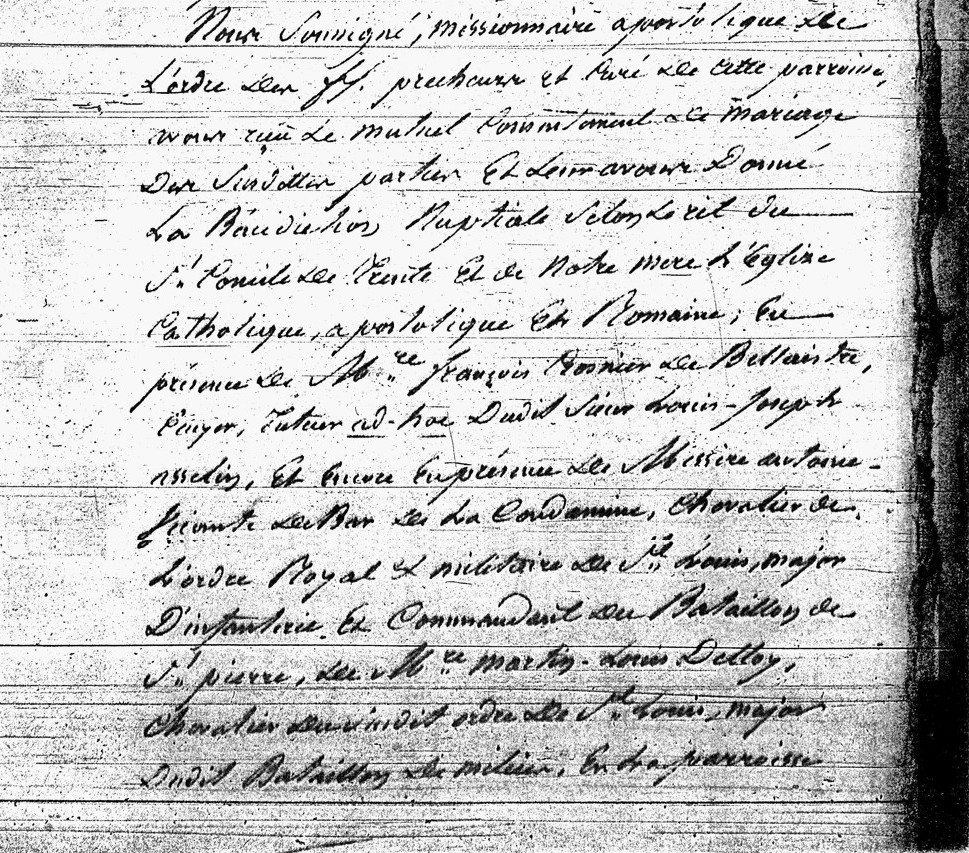 Nous Soussigné, missionnaire apostolique de
L'ordre des ff. precheurs et Curé de cette parroisse,
avons reçu Le mutuel Consentement de mariage
Des Susdittes parties Et Leur avons Donné
La Bénédiction Nuptiale Selon Le rit du
St. Concile de Trente Et de Notre mere L'Eglise
Catholique, apostolique Et Romaine; En
présence de Mre françois de Bellaistre,
Ecuyer, Tuteur ad-hoc Dudit Sieur Louis-Joseph
asselin, Et Encore En présence de Messire antoine-
Vicomte de Bar de La Condamine, Chevalier de
L'ordre Royal & militaire de St. Louis, major
D'infanterie Et Commandant du Bataillon de
St. pierre, de Mre martin-Louis Delloy,
Chevalier du susdit ordre de St. Louis, major
Dudit Bataillon de milices; En La parroisse